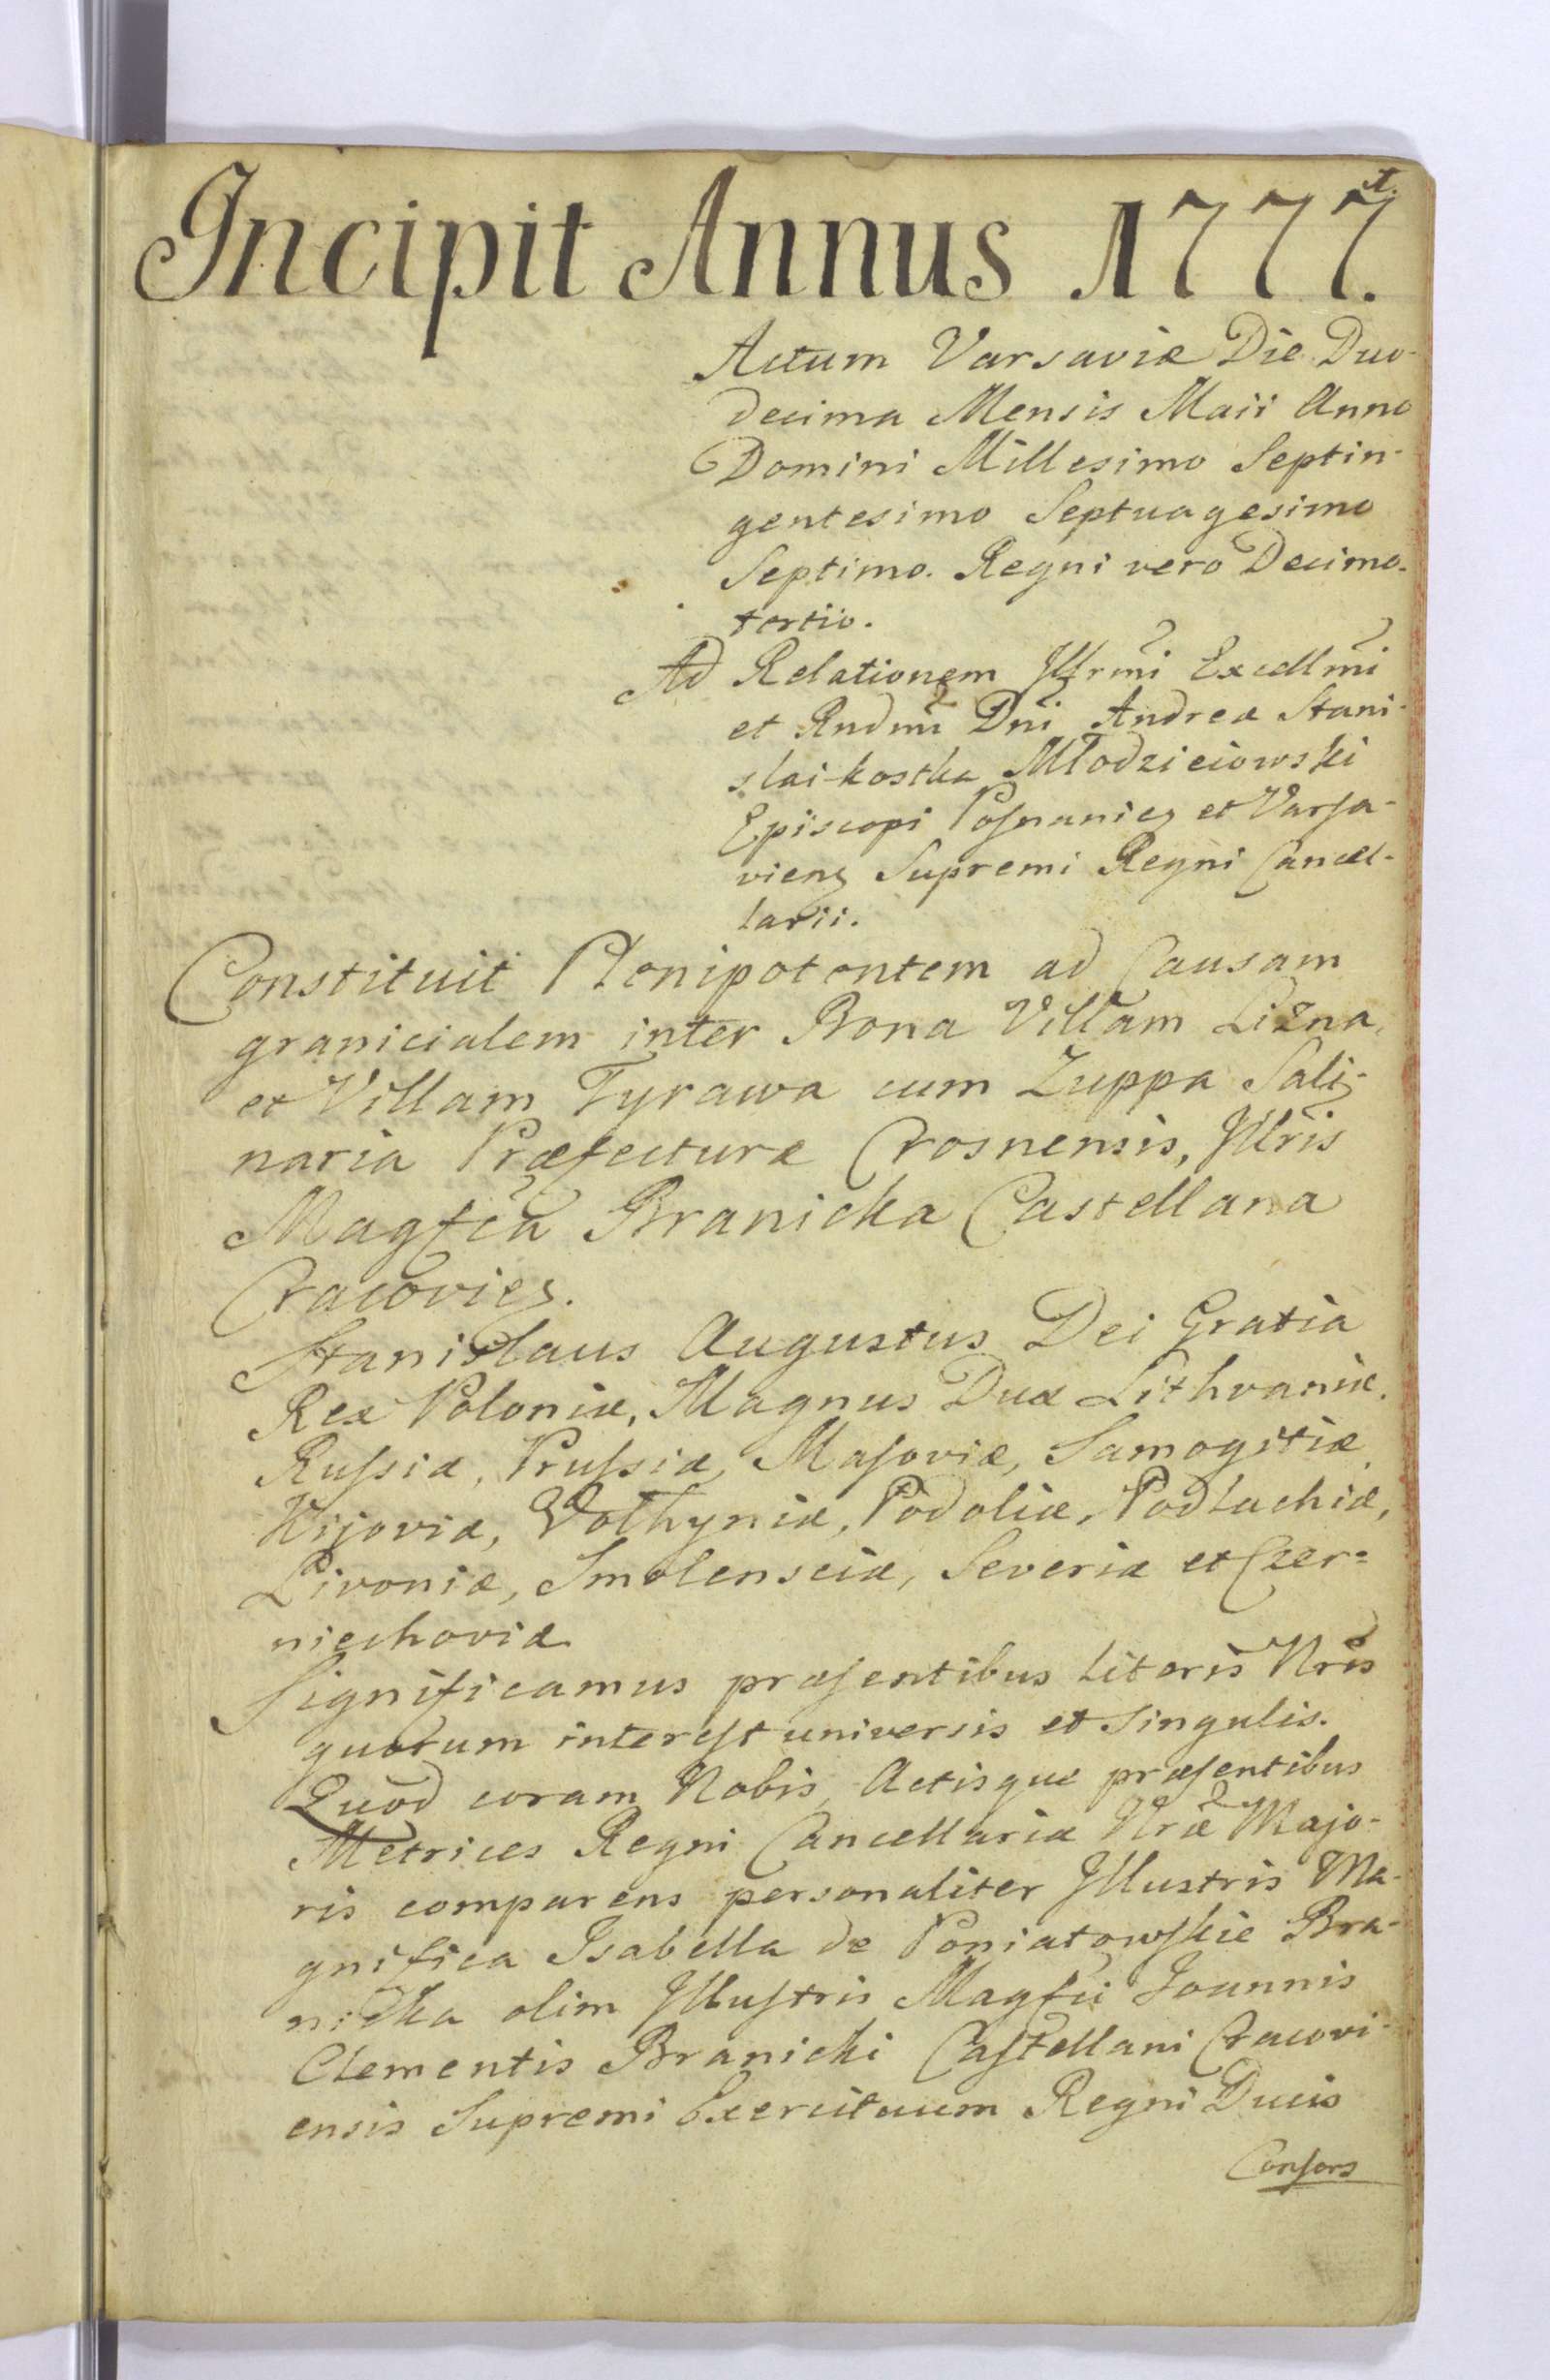 1.
Incipit Annus 1777.
Actum Varsaviæ Die Duo-
decima Mensis Maii Anno
Domini Millesimo Septin-
gentesimo Septuagesimo
Septimo. Regni vero Decimo-
tertio.
Ad Relationem Illrmi Excellmi
et Rndmi Dni Andreæ Stani-
slai kostka Młodzieiowski
Episcopi Posnanien et Varsa-
vien Supremi Regni Cancel-
larii.
Constituit Plenipotentem ad Causam
granicialem inter Bona Villam Lizna
et Villam Tyrawa cum Zuppa Sali-
naria Præfecturæ Crosnensis, Illris
Magfca Branicka Castellana
Cracovien.
Stanislaus Augustus Dei Gratia
Rex Poloniæ, Magnus Dux Lithvaniæ,
Russiæ, Prussiæ, Masoviæ, Samogitiæ,
Kijoviæ, Volhyniæ, Podoliæ, Podlachiæ,
Livoniæ, Smolensciæ, Severiæ et Czer-
niechoviæ.
Significamus præsentibus Literis Nris
quorum interest universis et Singulis.
Quod coram Nobis, Actisque præsentibus
Metrices Regni Cancellariæ Nræ Majo-
ris comparens personaliter Illustris Ma-
gnifica Isabella de Poniatowskie Bra-
nicka olim Illustris Magfci Joannis
Clementis Branicki Castellani Cracovi-
ensis Supremi Exercituum Regni Ducis
Consors